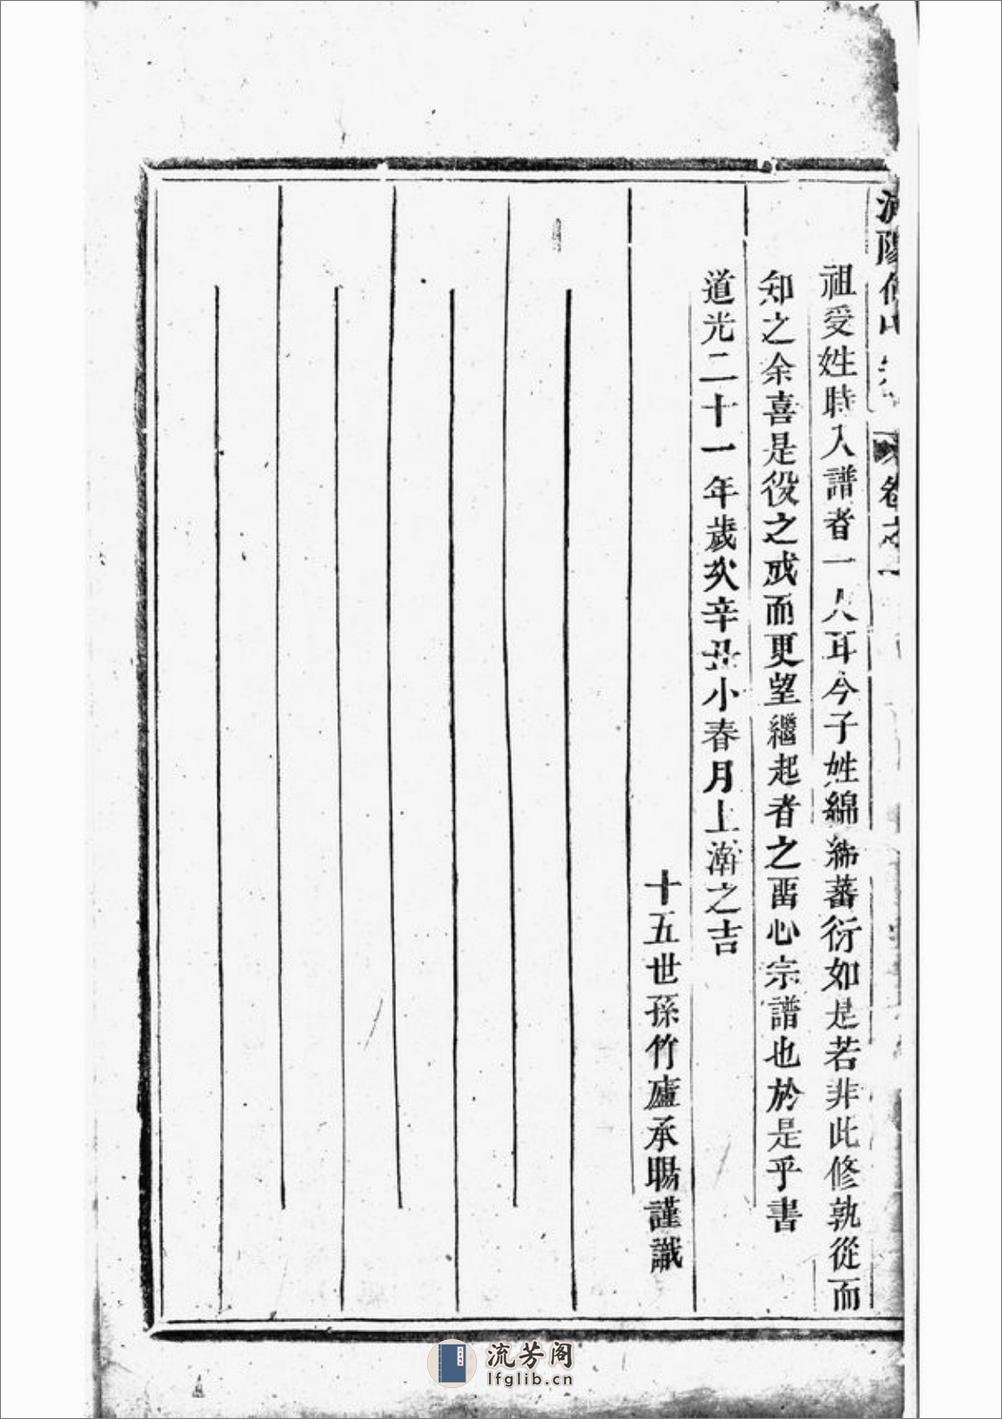 陽 氏 卷之一
祖受姓時入譜者一人耳今子姓綿綿蕃衍如是若非此修孰從而
知之余喜是役之成而更望繼起者之畱心宗譜也於是乎書
道光二十一年歲次辛丑小春月上澣之吉
十五世孫竹廬承賜謹識
流芳阁
lfglib.cn